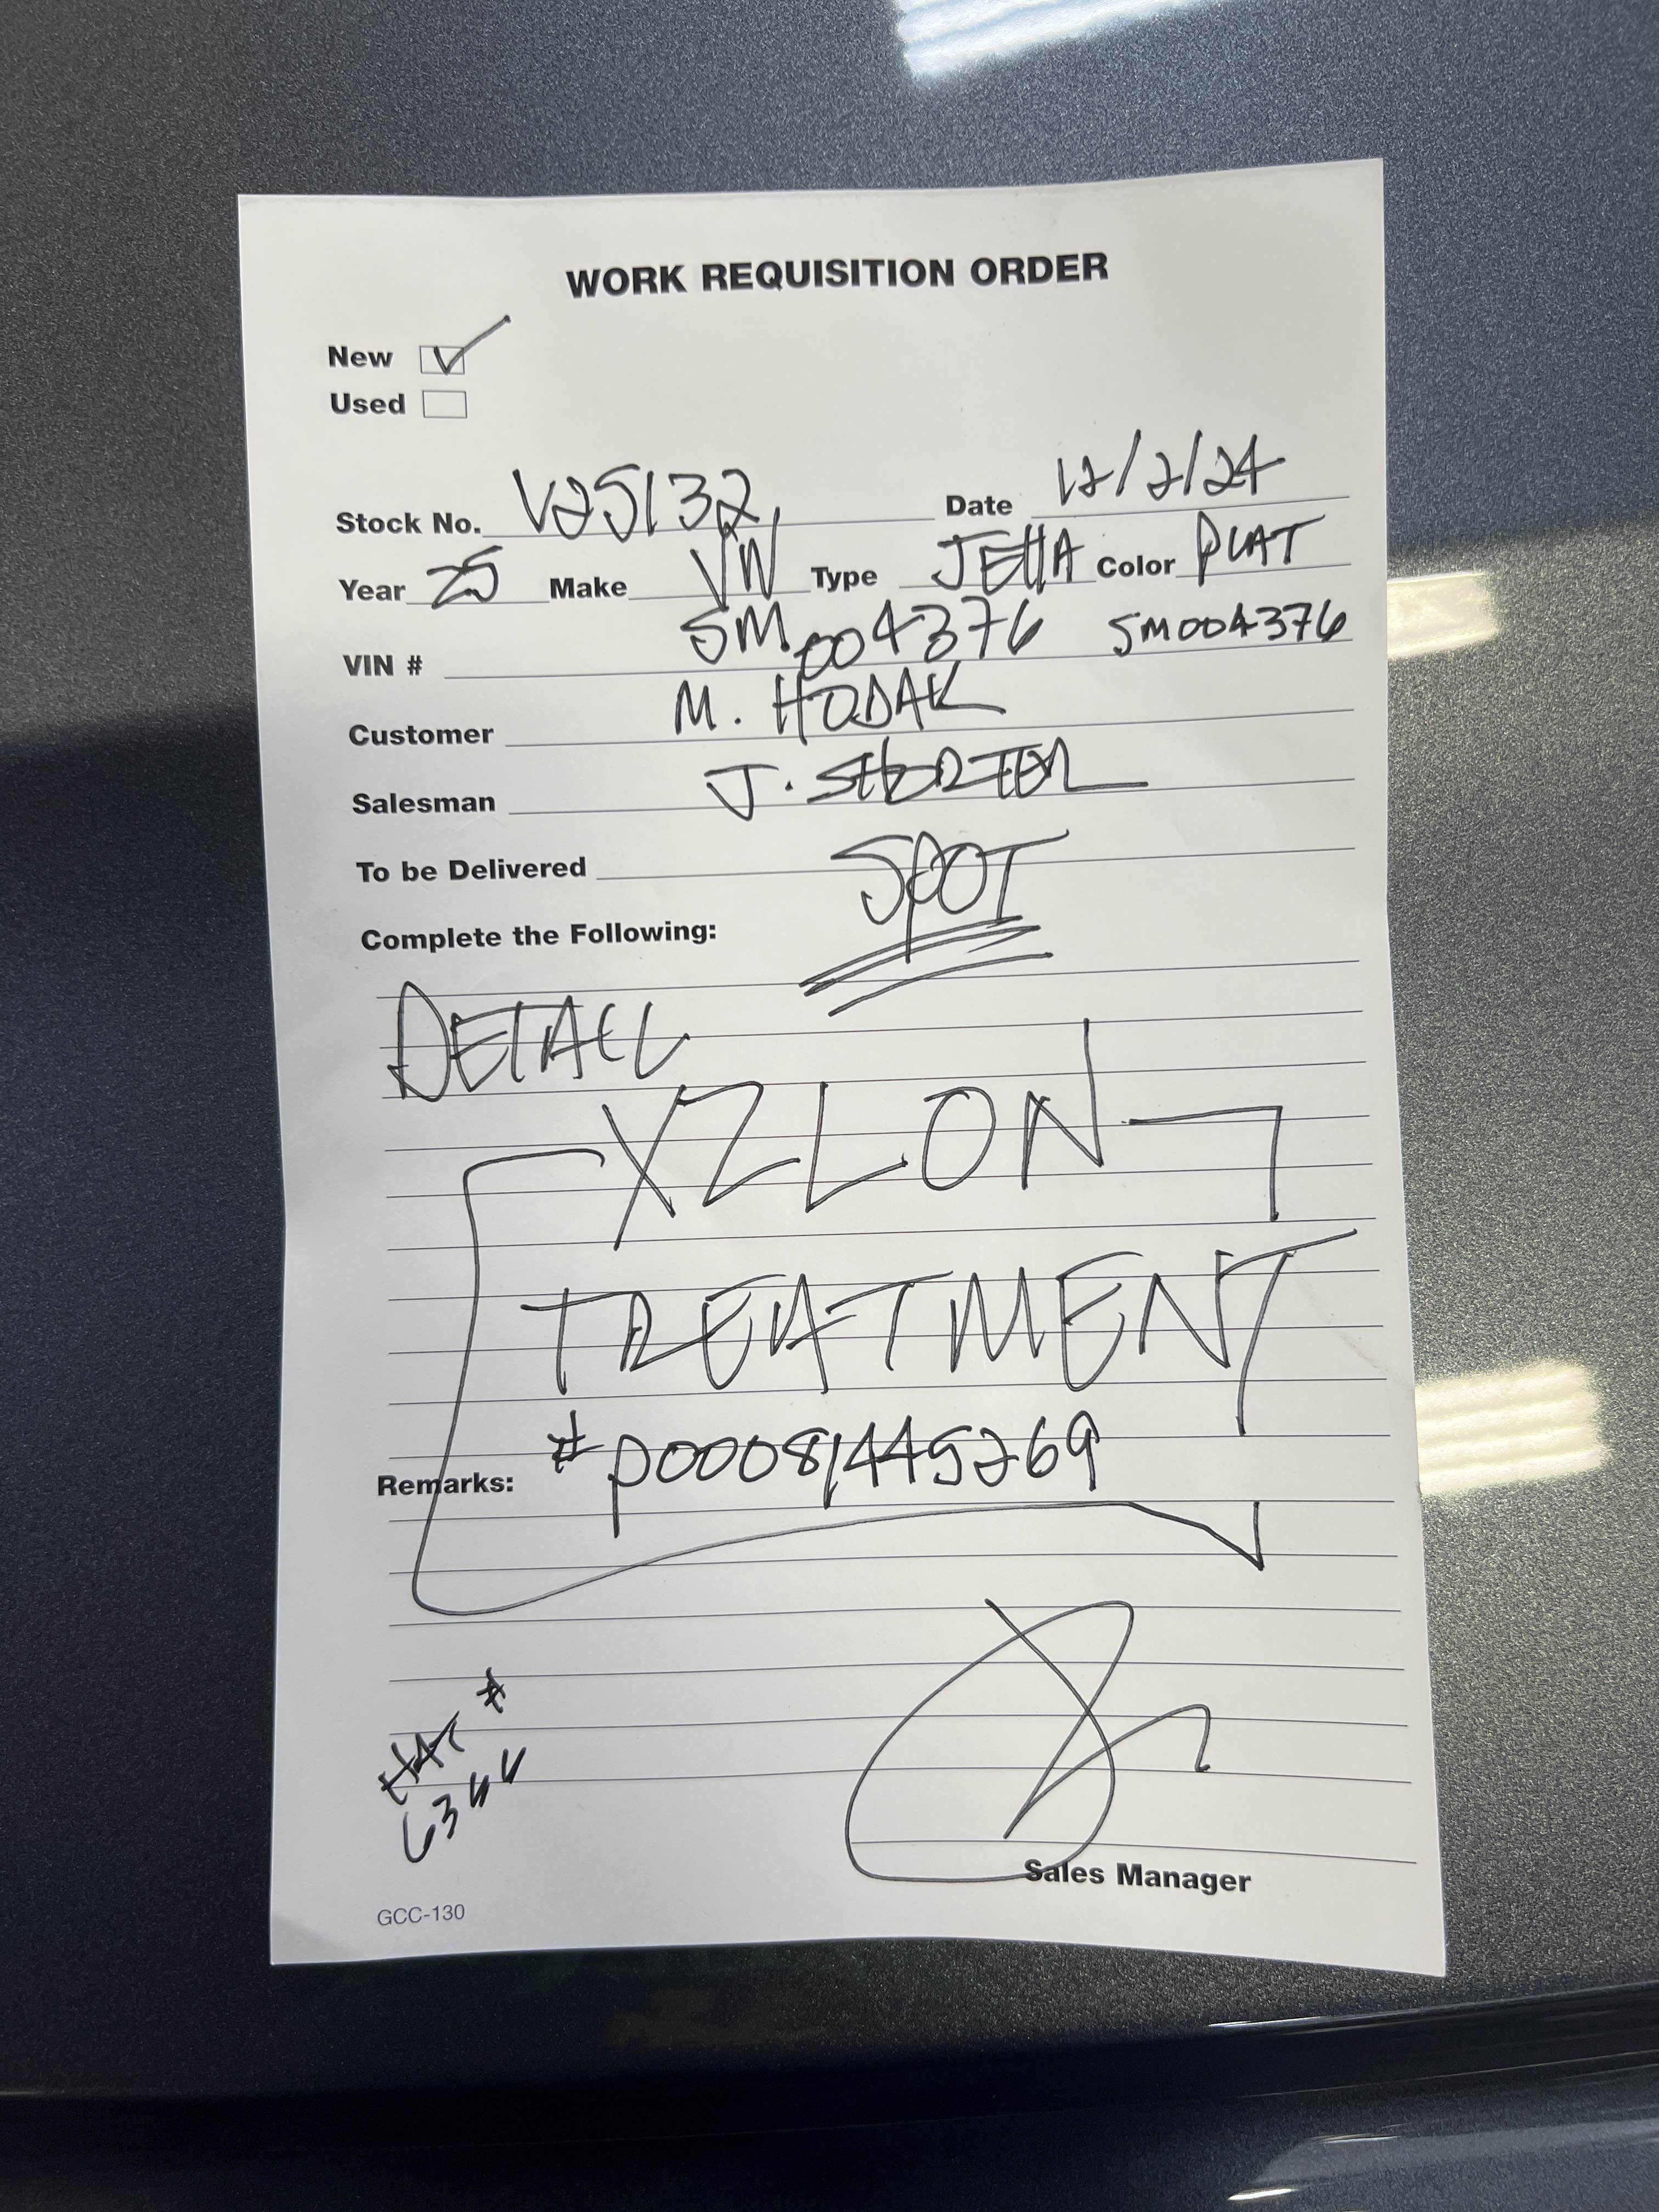 WORK REQUISITION ORDER
New ✓
Used
Stock No. V25132 Date 12/2/24
Year 25 Make VW Type JETTA Color PLAT
VIN # SM004376 SM004376
Customer M. HODAK
Salesman J. SHORTER
To be Delivered SPOT
Complete the Following:
DETAIL
XZLON
TREATMENT
#P00081445269
Remarks:
#
Sales Manager
GCC-130